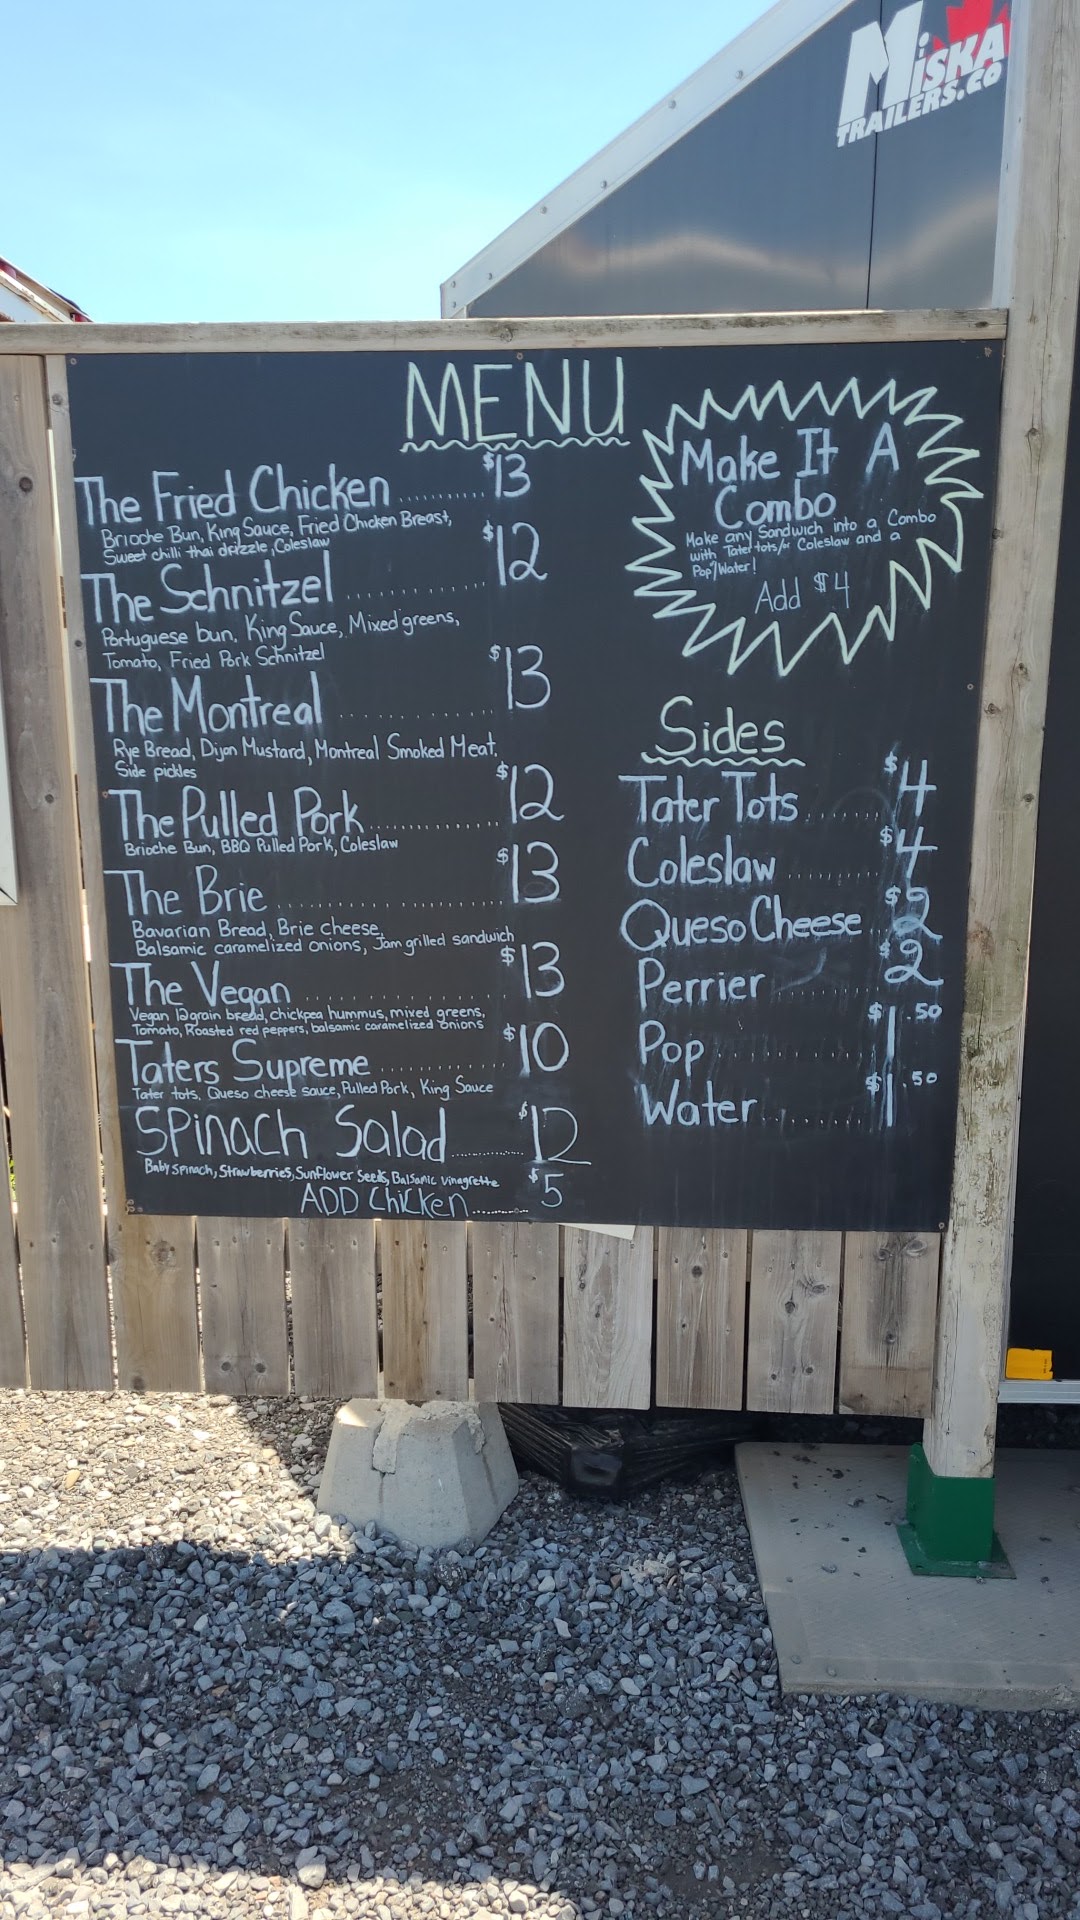 MiSKA
TRAILERS.CO
MENU
The Fried Chicken .......... $13
Brioche Bun, King Sauce, Fried Chicken Breast,
Sweet chilli thai drizzle, Coleslaw
The Schnitzel ......... $12
Portuguese bun, King Sauce, Mixed greens,
Tomato, Fried Pork Schnitzel
The Montreal .......... $13
Rye Bread, Dijon Mustard, Montreal Smoked Meat,
Side pickles
The Pulled Pork .............. $12
Brioche Bun, BBQ Pulled Pork, Coleslaw
The Brie .................... $13
Bavarian Bread, Brie cheese,
Balsamic caramelized onions, Jam grilled sandwich
The Vegan ................ $13
Vegan 12grain bread, chickpea hummus, mixed greens,
Tomato, Roasted red peppers, balsamic caramelized onions
Taters Supreme ............ $10
Tater tots, Queso cheese sauce, Pulled Pork, King Sauce
SPinach Salad .............. $12
Baby Spinach, Strawberries, Sunflower Seeds, Balsamic Vinagrette
ADD Chicken .......... $5
Make It A
Combo
Make any Sandwich into a Combo
with Tater tots/or Coleslaw and a
Pop/Water!
Add $4
Sides
Tater Tots ........ $4
Coleslaw ......... $4
Queso Cheese .. $2
Perrier .......... $2
Pop ............ $1.50
Water ......... $1.50